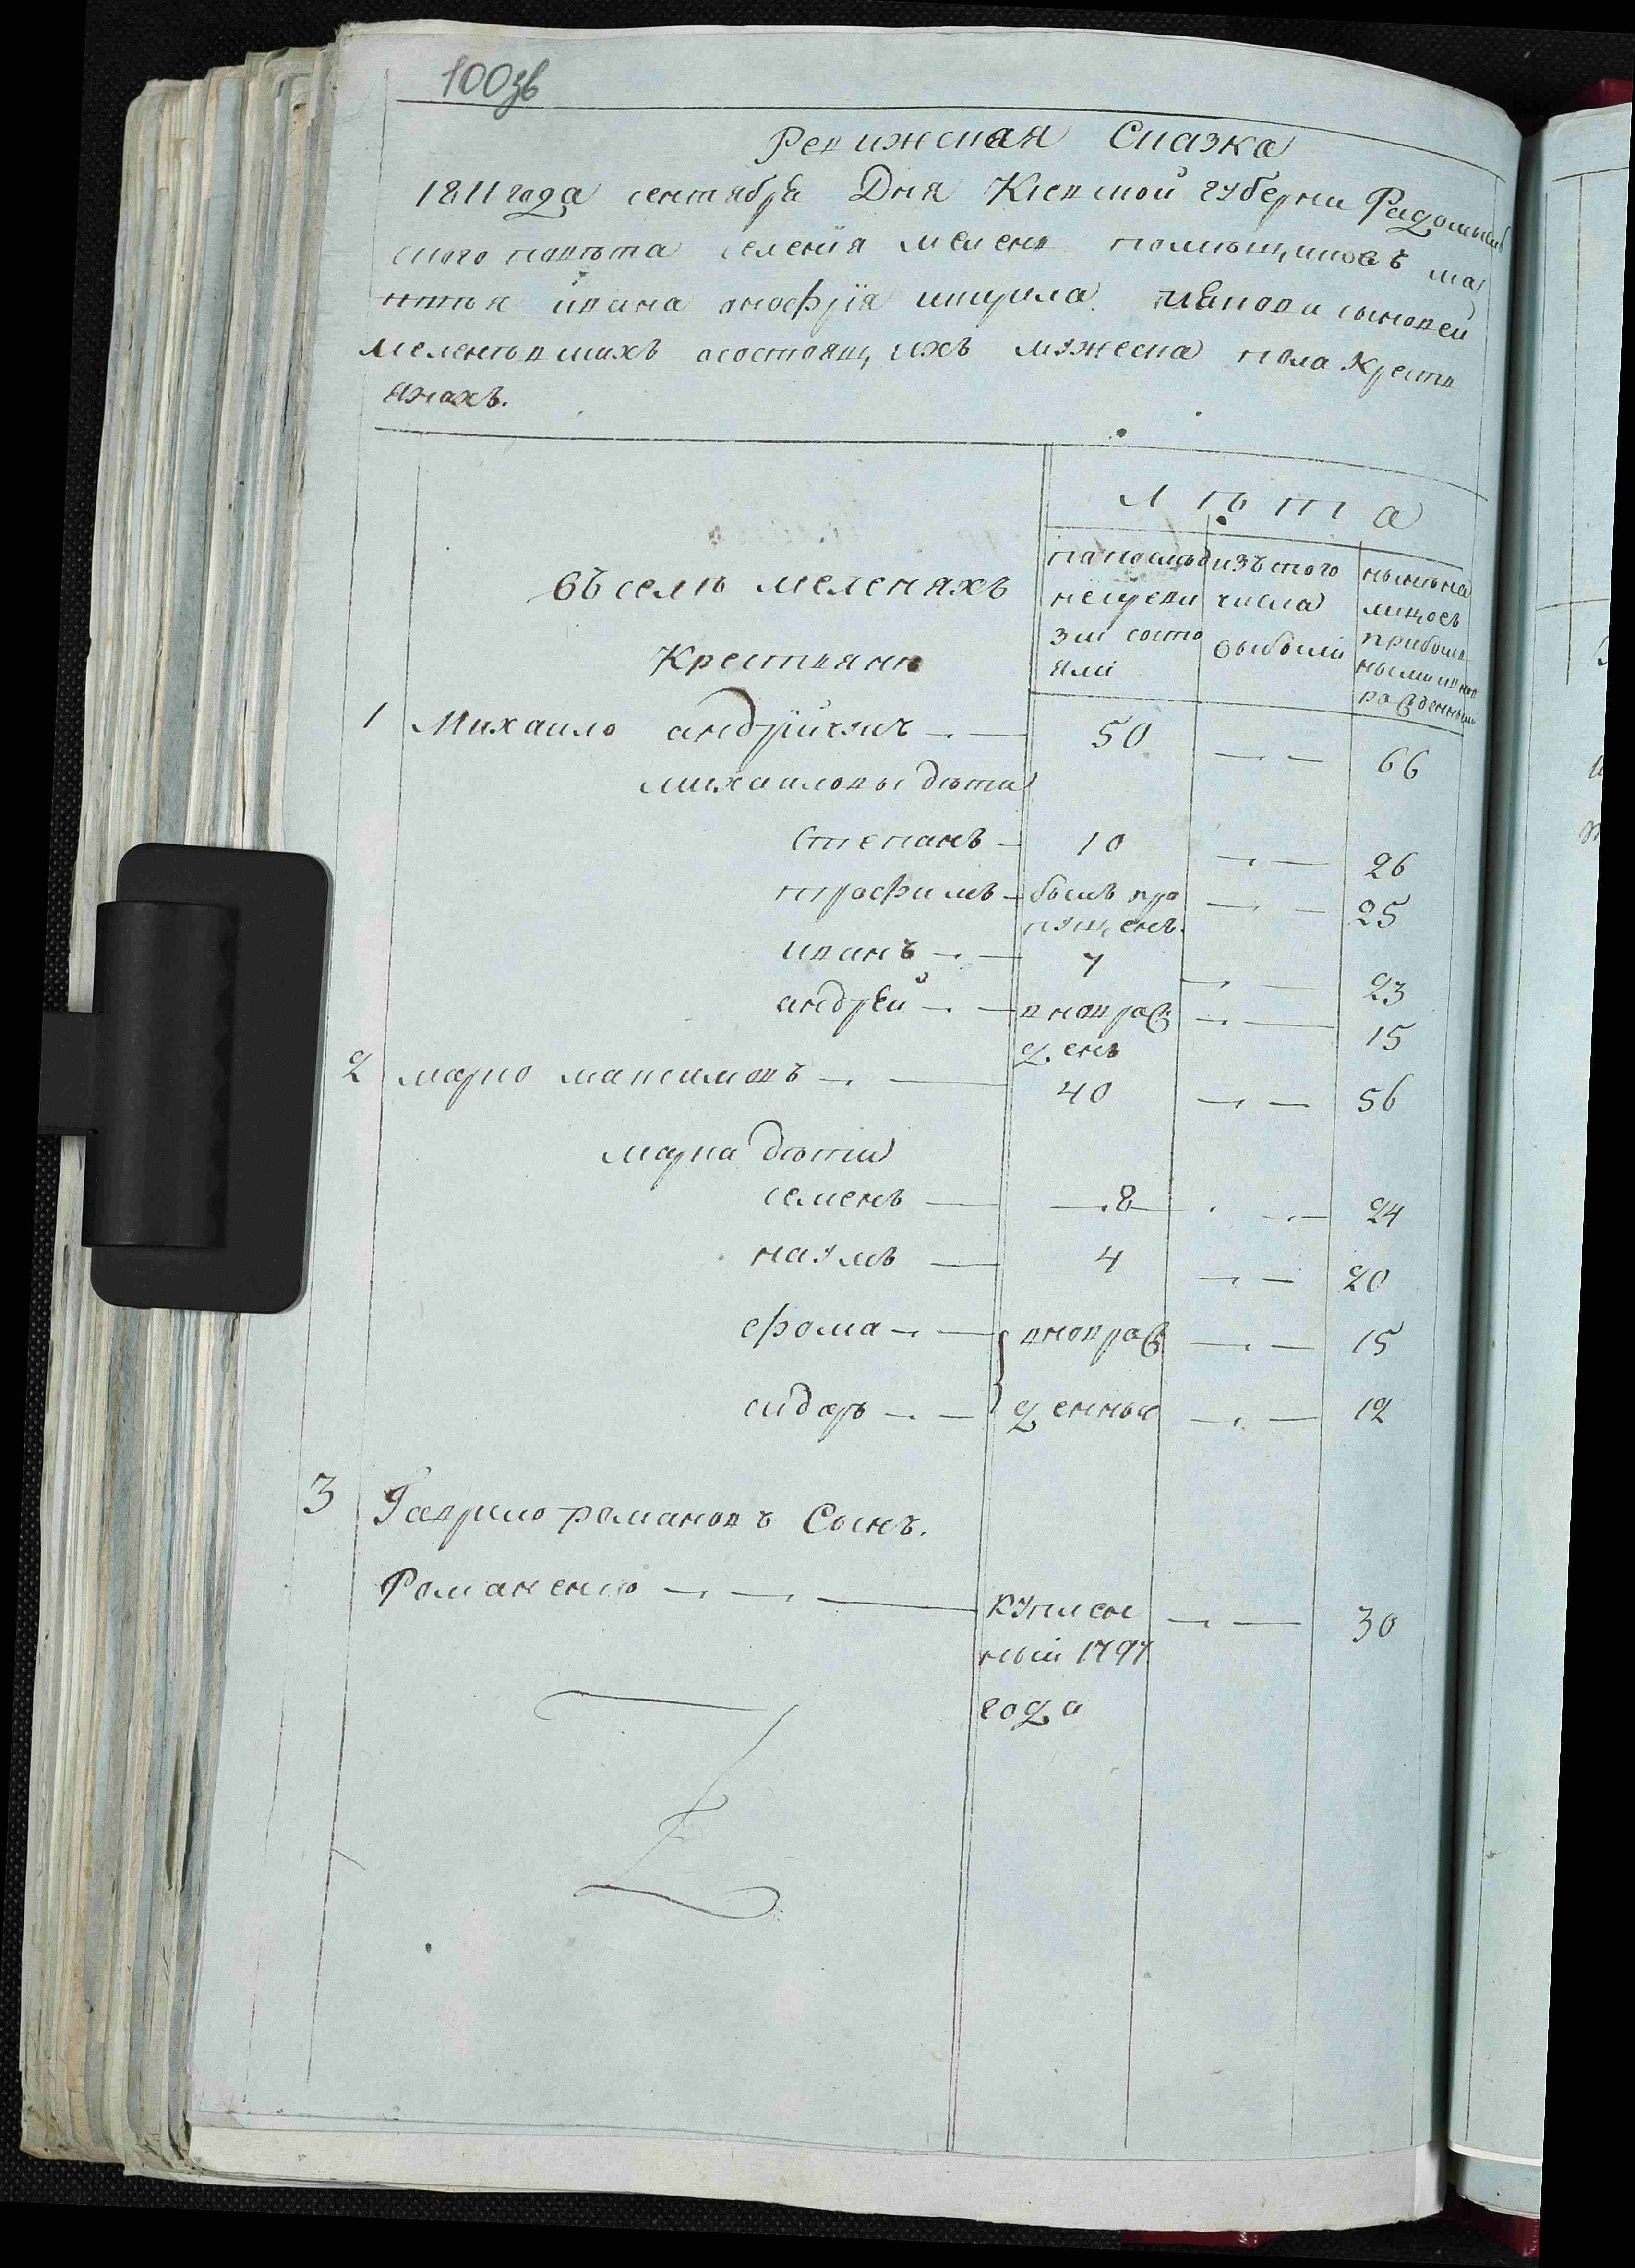 100зв
Ревижская Сказка
1811 года сентября Дня Киевской губерни Радомысль
ского повѣта селения меленѣ помѣщиковъ ма
ѳтѣя ивана онофрія кирила сыновей
меленѣвскихъ осостоящихъ мужеска пола Крестя
янахъ.
Лѣта
Въ селѣ меленяхъ
Крестяне
по послѣд
ней реви
зіи состо
яли
изъ того
числа
выбыли
нынѣ на
лицось
прибыл
ными и вно
рожденными
1 Михаило андрійчукъ 50 66
михаиловы дѣти
Степанъ 10 26
трофимъ былъ про
пущенъ 25
иванъ 7 23
андрей вноврож
денъ 15
2 марко максимовъ 40 56
марка дѣти
семенъ 8 24
наумъ 4 20
фома вноврож 15
сидоръ денные 12
3 Гаврило романовъ Сынъ.
Романенко куплен 30
ный 1797
года